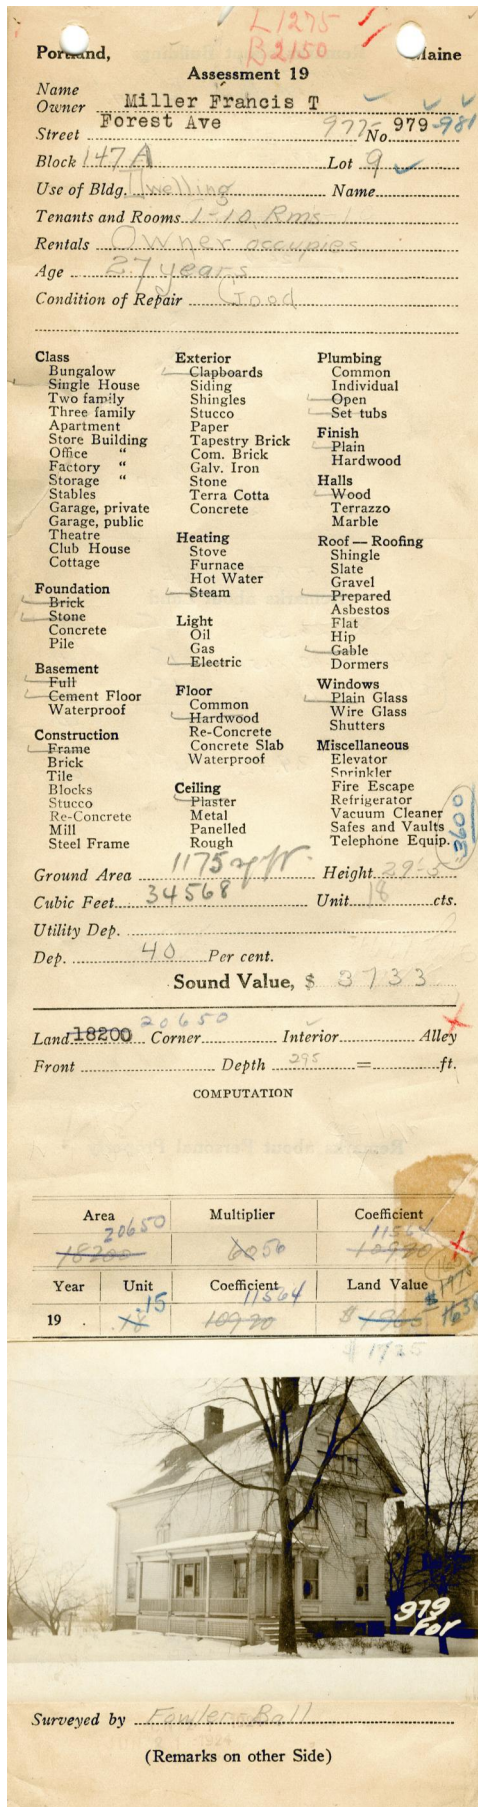 L1275
B2150
Portland, Maine
Assessment 19
Name
Owner Miller Francis T
Street Forest Ave 977- No. 979-981
Block 147A Lot 9
Use of Bldg. Dwelling Name
Tenants and Rooms 1-10 Rms
Rentals Owner occupies
Age 27 years
Condition of Repair Good
Class
Bungalow
Single House
Two family
Three family
Apartment
Store Building
Office "
Factory "
Storage "
Stables
Garage, private
Garage, public
Theatre
Club House
Cottage
Foundation
Brick
Stone
Concrete
Pile
Basement
Full
Cement Floor
Waterproof
Construction
Frame
Brick
Tile
Blocks
Stucco
Re-Concrete
Mill
Steel Frame
Exterior
Clapboards
Siding
Shingles
Stucco
Paper
Tapestry Brick
Com. Brick
Galv. Iron
Stone
Terra Cotta
Concrete
Heating
Stove
Furnace
Hot Water
Steam
Light
Oil
Gas
Electric
Floor
Common
Hardwood
Re-Concrete
Concrete Slab
Waterproof
Ceiling
Plaster
Metal
Panelled
Rough
Plumbing
Common
Individual
Open
Set tubs
Finish
Plain
Hardwood
Halls
Wood
Terrazzo
Marble
Roof — Roofing
Shingle
Slate
Gravel
Prepared
Asbestos
Flat
Hip
Gable
Dormers
Windows
Plain Glass
Wire Glass
Shutters
Miscellaneous
Elevator
Sprinkler
Fire Escape
Refrigerator
Vacuum Cleaner
Safes and Vaults
Telephone Equip.
3600
Ground Area 1175 sq ft. Height 29.5
Cubic Feet 34568 Unit 18 cts.
Utility Dep.
Dep. 40 Per cent.
Sound Value, $ 3733
20650
Land 18200 Corner Interior Alley
Front Depth 295 = ft.
COMPUTATION
Area Multiplier Coefficient
20650 11564
18200 6056 10920
Year Unit Coefficient Land Value
.15 11564
19 . .18 10920 $ 1965
$ 1735
979
For
Surveyed by Fowler Ball
(Remarks on other Side)